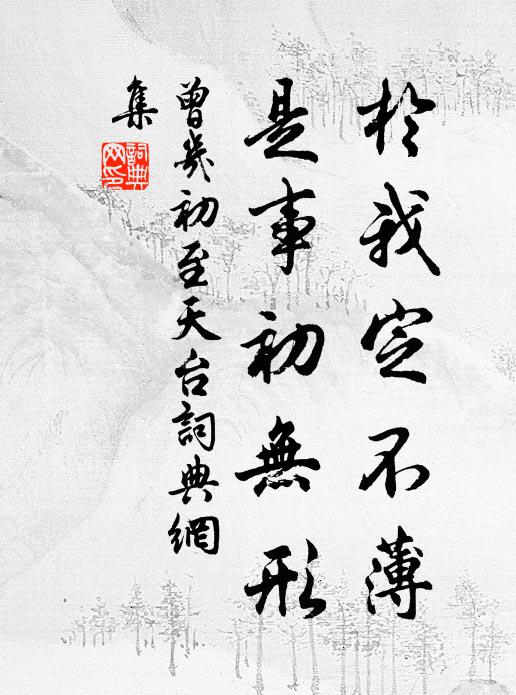 於我定不薄
是事初無形
曾幾初至天台詞典網
集
詞典
网印